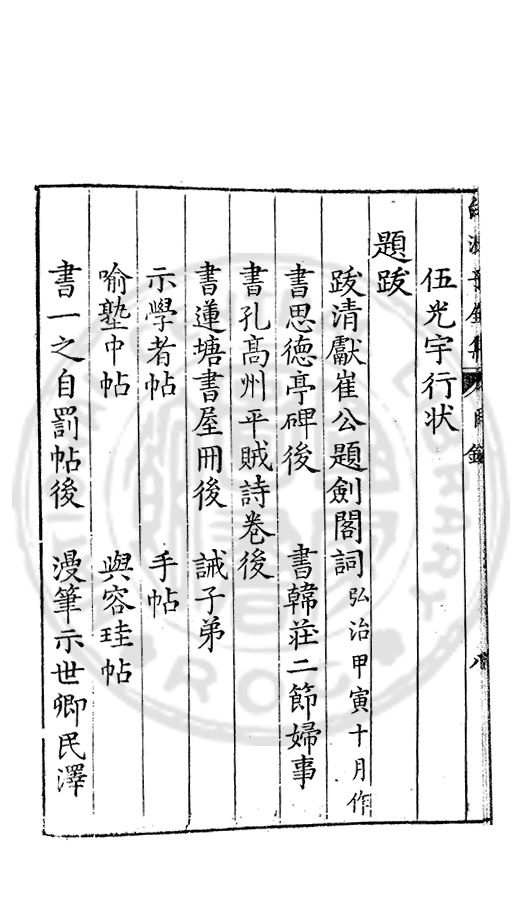 伍光宇行状
題跋
跋清獻崔公題劍閣詞 弘治甲寅十月作
書思德亭碑後 書韓莊二節婦事
書孔髙州平賊詩卷後
書蓮塘書屋冊後 誡子弟
示學者帖 手帖
喻塾中帖 與容珪帖
書一之自罰帖後 漫筆示世卿民澤